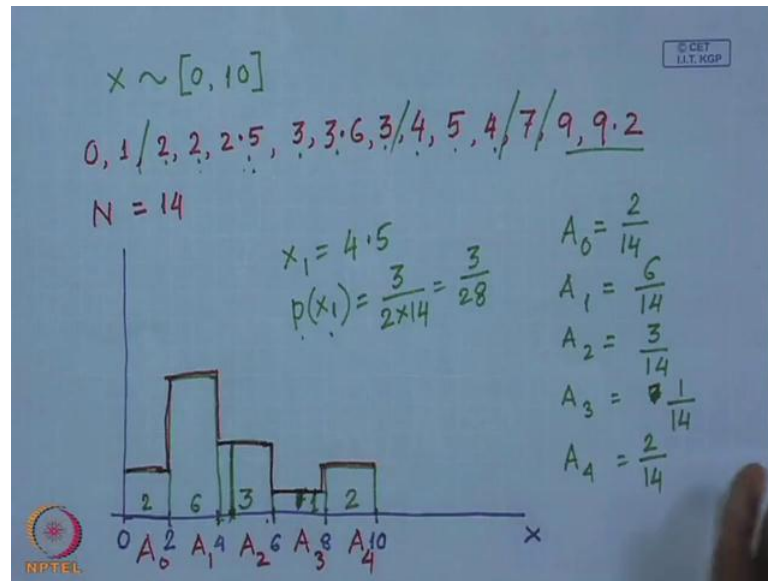 © CET
I.I.T. KGP
x ~ [0, 10]
0, 1 / 2, 2, 2.5, 3, 3.6, 3 / 4, 5, 4 / 7 / 9, 9.2
N = 14
x₁ = 4.5
p(x₁) = 3/(2×14) = 3/28
A₀ = 2/14
A₁ = 6/14
A₂ = 3/14
A₃ = 1/14
A₄ = 2/14
2 6 3 1 2
0 2 4 6 8 10 x
A₀ A₁ A₂ A₃ A₄
NPTEL